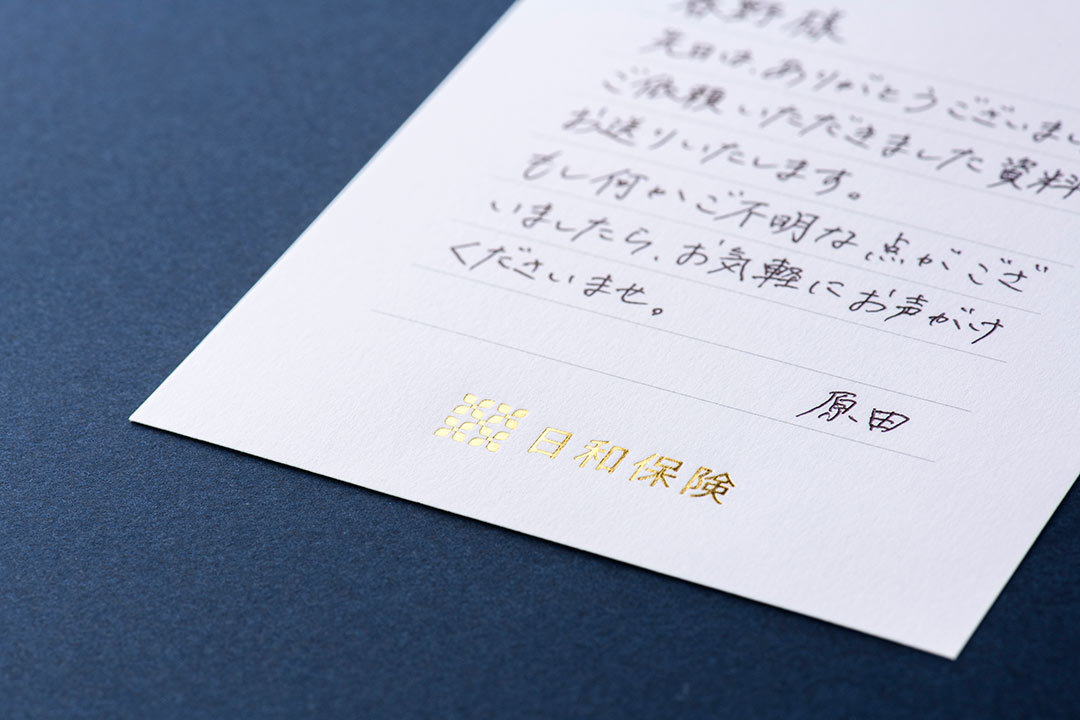 春野様
先日は、ありがとうございまし
ご依頼いただきました資料
お送りいたします。
もし何かご不明な点がござ
いましたら、お気軽にお声がけ
くださいませ。
原田
日和保険